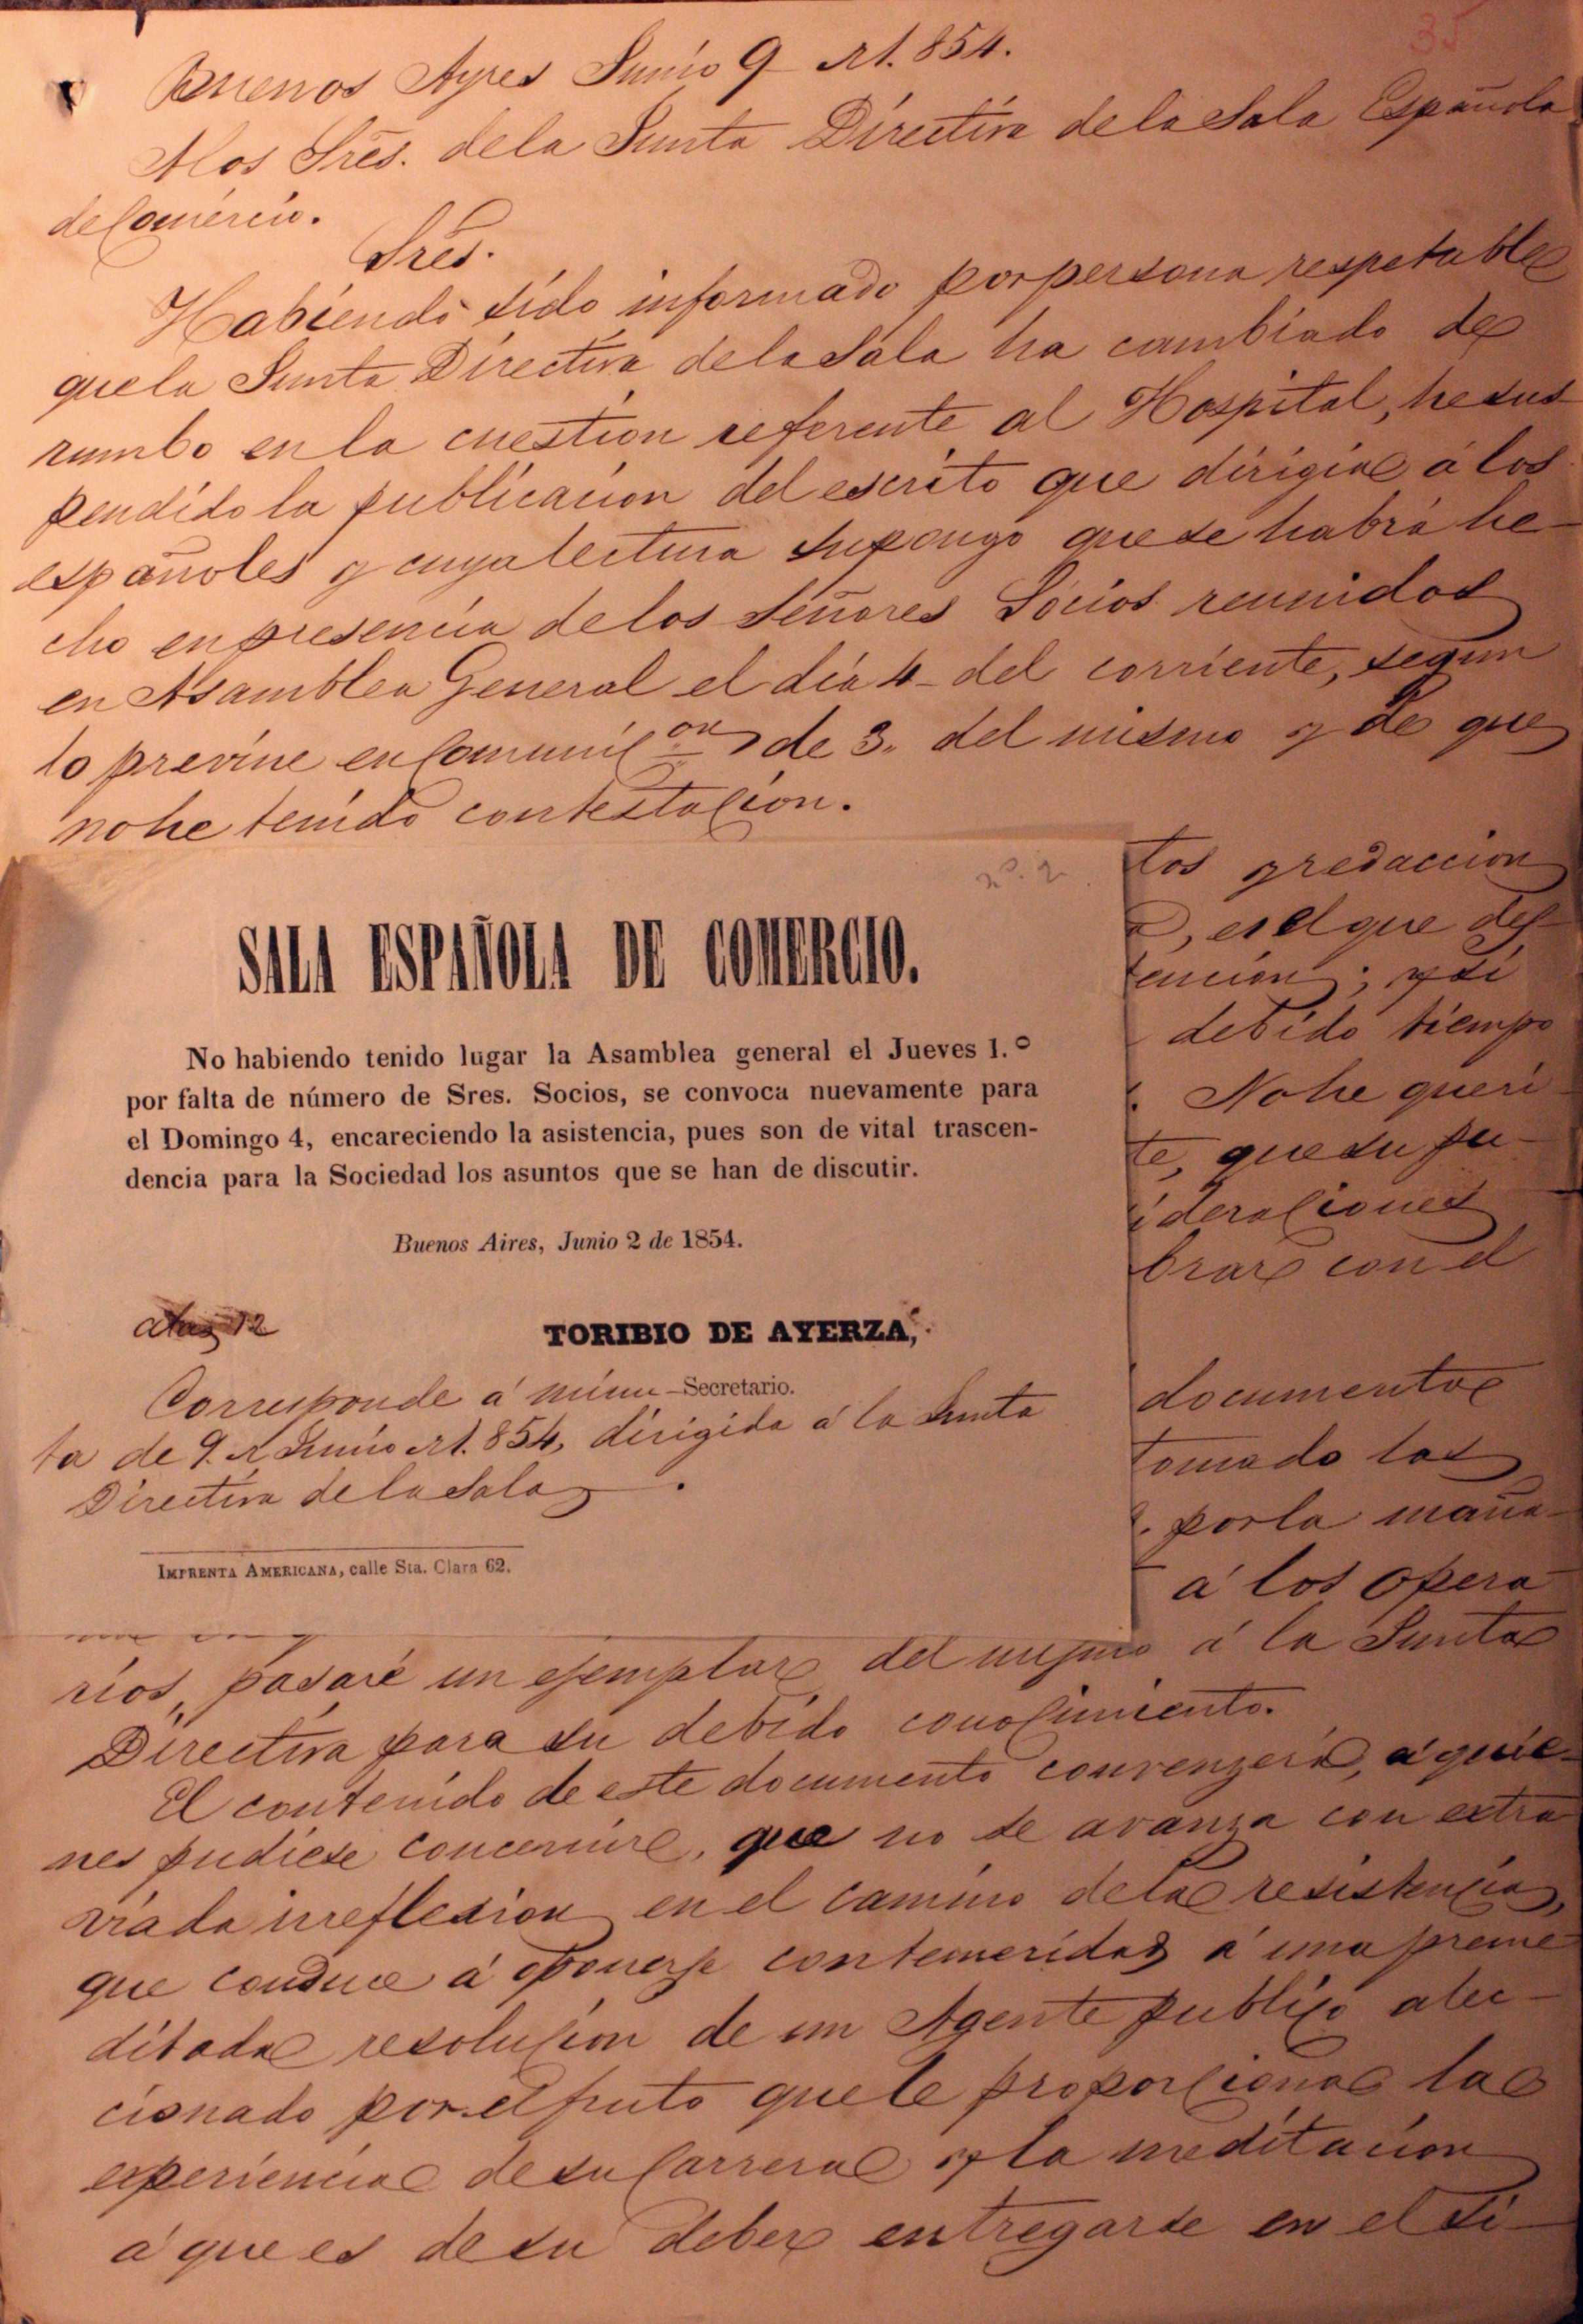 35
Buenos Ayres Junio 9 de 1.854.
A los Sres. de la Junta Directiva de la Sala Española
de Comercio.
Sres.
Habiendo sido informado por persona respetable
que la Junta Directiva de la Sala ha cambiado de
rumbo en la cuestion referente al Hospital, he sus
pendido la publicacion del escrito que dirigia á los
españoles y cuya lectura supongo que se habrá he-
cho en presencia de los Señores Socios reunidos
en Asamblea General el dia 4 del corriente, segun
lo previne en Comunicon de 3. del mismo y de que
no he tenido contestacion.
nº. 2
SALA ESPAÑOLA DE COMERCIO.
No habiendo tenido lugar la Asamblea general el Jueves 1.º
por falta de número de Sres. Socios, se convoca nuevamente para
el Domingo 4, encareciendo la asistencia, pues son de vital trascen-
dencia para la Sociedad los asuntos que se han de discutir.
Buenos Aires, Junio 2 de 1854.
12
TORIBIO DE AYERZA,
Secretario.
Corresponde á minu-
ta de 9. de Junio de 1.854, dirigida á la Junta
Directiva de la Sala.
IMPRENTA AMERICANA, calle Sta. Clara 62.
tos y redaccion
, es el que des-
tencion; y si
debido tiempo
No he queri
te, que su pu-
ideraciones
brar con el
documento
tomado las
por la maña-
á los opera-
rios, pasaré un ejemplar del mismo á la Junta
Directiva para su debido conocimiento.
El contenido de este documento convenzerá, á quie-
nes pudiese concernir, que no se avanza con extra
viada irreflexion en el camino de la resistencia,
que conduce á oponerse con temeridad á una preme
ditada resolucion de un Agente publico alec-
cionado por el fruto que le proporciona la
experiencia de su Carrera y la meditacion
á que es de su deber entregarse en el si-